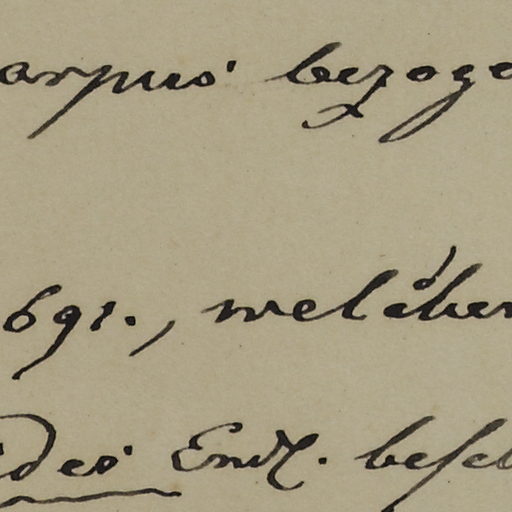 arpus bezoge
691., welcher
ides Endl. besch